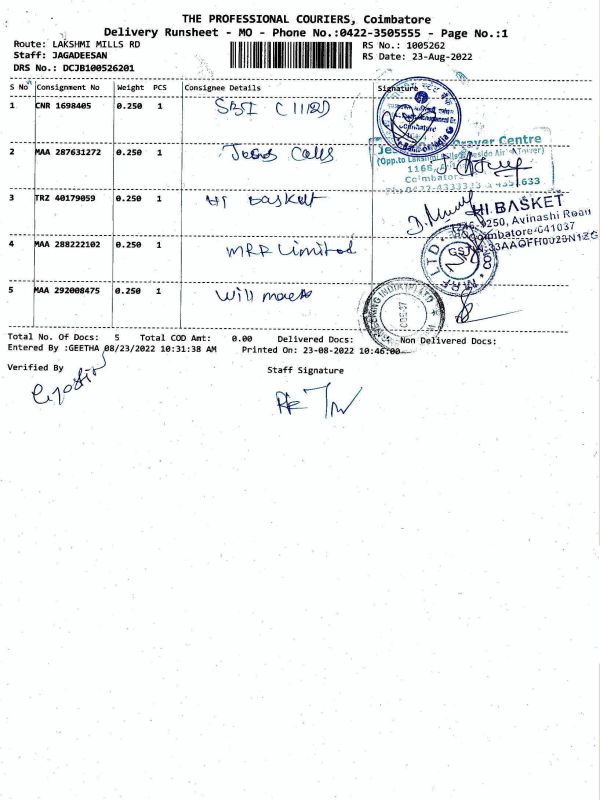 THE PROFESSIONAL COURIERS, Coimbatore
Delivery Runsheet - MO - Phone No.:0422-3505555 - Page No.:1
Route: LAKSHMI MILLS RD
RS No.: 1005262
Staff: JAGADEESAN
RS Date: 23-Aug-2022
DRS No.: DCJB100526201
S No Consignment No Weight PCS Consignee Details Signature
1 CNR 1698405 0.250 1 SBI
2 MAA 287631272 0.250 1 Jesus Calls
3 TRZ 40179059 0.250 1 HI Basket
4 MAA 288222102 0.250 1 MRF Limited
5 MAA 292008475 0.250 1 Will
Coimbatore
Prayer Centre
(Opp.to Lakshmi
1168,
Coimbatore
HI.BASKET
1250, Avinashi Road
Coimbatore-641037
MRF LTD
Total No. Of Docs: 5 Total COD Amt: 0.00 Delivered Docs: Non Delivered Docs:
Entered By :GEETHA 08/23/2022 10:31:38 AM Printed On: 23-08-2022 10:46:00
Verified By
Staff Signature